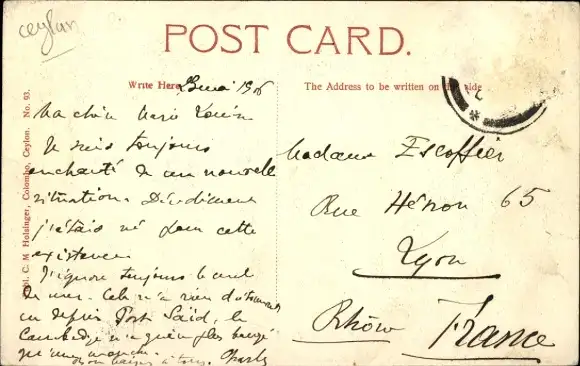 ceylan
POST CARD.
Write Here
The Address to be written on this side
Publ. C. M Holsinger, Colombo, Ceylon. No. 93.
Ma chère Marie Louise
Je suis toujours
enchanté de ma nouvelle
situation. Décidément
j'étais né pour cette
existence
J'ignore toujours le mal
de mer. Cela n'a rien d'étonnant
car depuis Port Saïd, le
Cambodge n'a guère plus bougé
qu'une
Charles
Madame Escoffier
Rue Hénon 65
Lyon
Rhône France